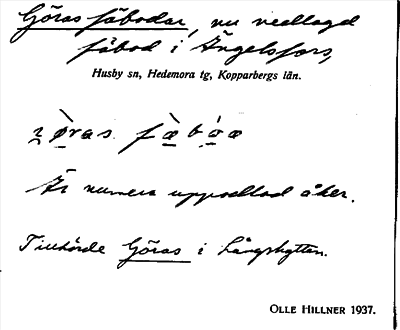 Göras fäbodar, nu nedlagd
fäbod i Ängelsfors,
Husby sn, Hedemora tg, Kopparbergs län.
Är numera uppodlad åker.
Tillhörde Göras i Långshyttan.
OLLE HILLNER 1937.